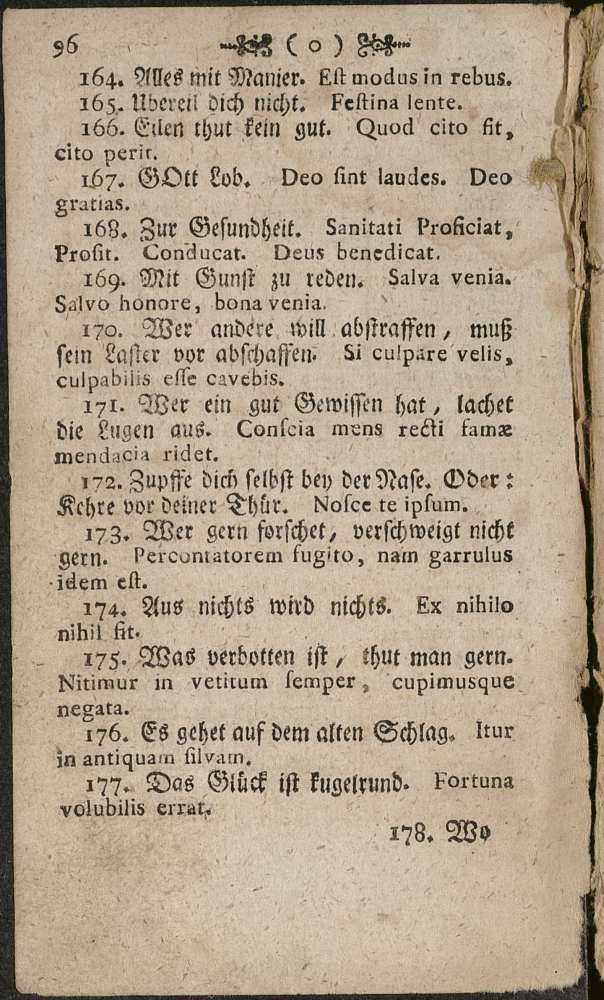 96 ( o )
164. Alles mit Manier. Eſt modus in rebus.
165. Ubereil dich nicht. Feſtina lente.
166. Eilen thut kein gut. Quod cito fit,
cito perit.
167. GOtt Lob. Deo ſint laudes. Deo
gratias.
168. Zur Geſundheit. Sanitati Proficiat,
Proſit. Conducat. Deus benedicat.
169. Mit Gunſt zu reden. Salva venia.
Salvo honore, bona venia.
170. Wer andere will abſtraffen, muß
ſein Laſter vor abſchaffen. Si culpare velis,
culpabilis eſſe cavebis.
171. Wer ein gut Gewiſſen hat, lachet
die Lugen aus. Conſcia mens recti famæ
mendacia ridet.
172. Zupffe dich ſelbſt bey der Naſe. Oder:
Kehre vor deiner Thür. Noſce te ipſum.
173. Wer gern forſchet, verſchweigt nicht
gern. Percontatorem fugito, nam garrulus
idem eſt.
174. Aus nichts wird nichts. Ex nihilo
nihil fit.
175. Was verbotten iſt, thut man gern.
Nitimur in vetitum ſemper, cupimusque
negata.
176. Es gehet auf dem alten Schlag. Itur
in antiquam ſilvam.
177. Das Glück iſt kugelrund. Fortuna
volubilis errat.
178. Wo